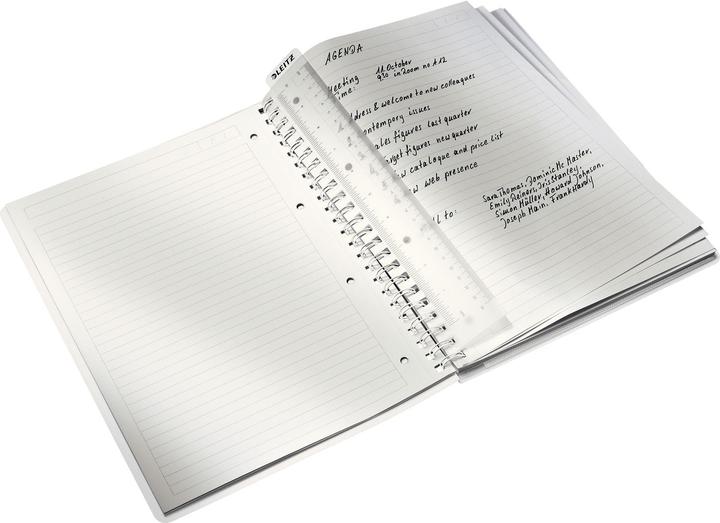 LEITZ
AGENDA
Meeting 11. October
time: 9.30 in Room no A12
dress & welcome to new colleagues
ontempory issues
ales figures last quarter
rget figures new quarter
w catalogue and price list
w web presence
ll to: Sara Thomas, Dominic Mc Master,
Emily Reiners, Iris Stanley,
Simon Müller, Howard Johnson,
Joseph Main, Frank Hardy